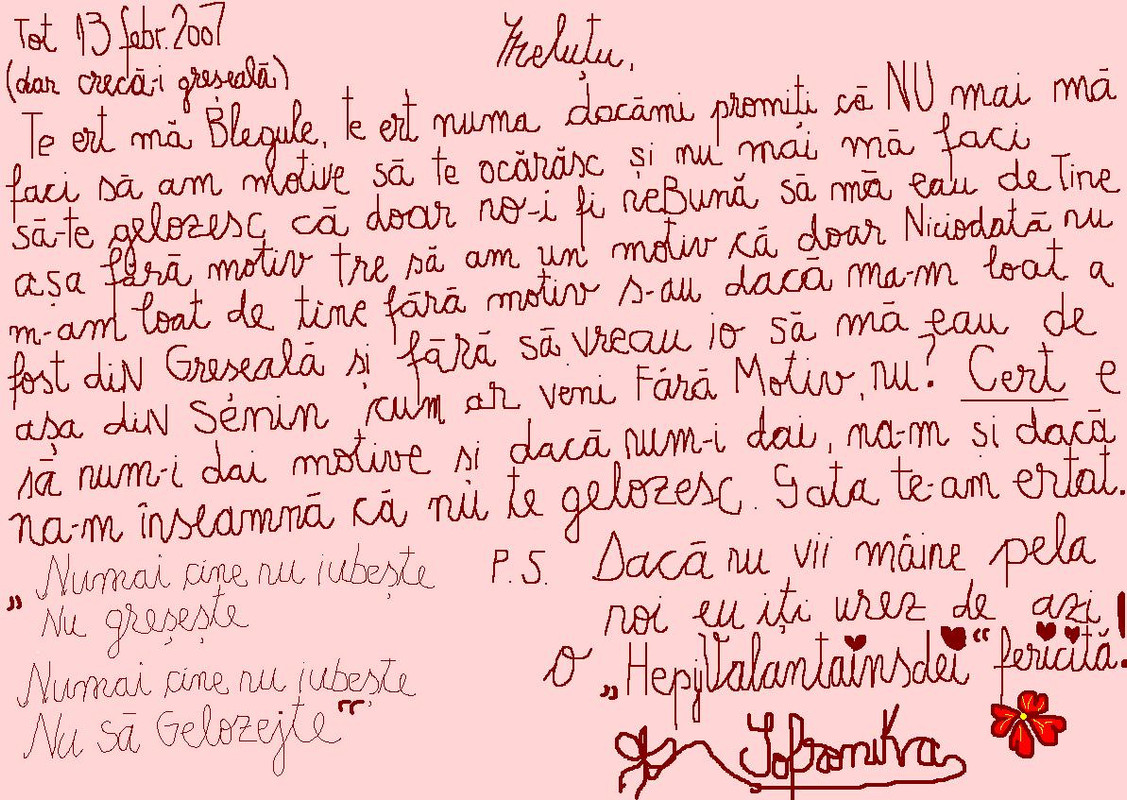 Tot 13 febr. 2007
(dar crecă-i greșeală)
Treluțu,
Te ert mă Blegule, te ert numa dacămi promiți că NU mai mă
faci să am motive să te ocărăsc și nu mai mă faci
să-te gelozesc că doar no-i fi neBună să mă eau de Tine
așa fără motiv tre să am un motiv că doar Niciodată nu
m-am loat de tine fără motiv s-au dacă ma-m loat a
fost diN Greseală și fără să vreau io să mă eau de
așa diN Sénin cum ar veni Fără Motiv, nu? Cert e
să num-i dai motive si dacă num-i dai, na-m si dacă
na-m înseamnă că nu te gelozesc. Gata te-am ertat.
„Numai cine nu iubește
Nu greșește
Numai cine nu iubește
Nu să Gelozejte“
P.S. Dacă nu vii mâine pela
noi eu iți urez de azi!
O „Hepij Valantainsdei“ fericită!
Sofronikva